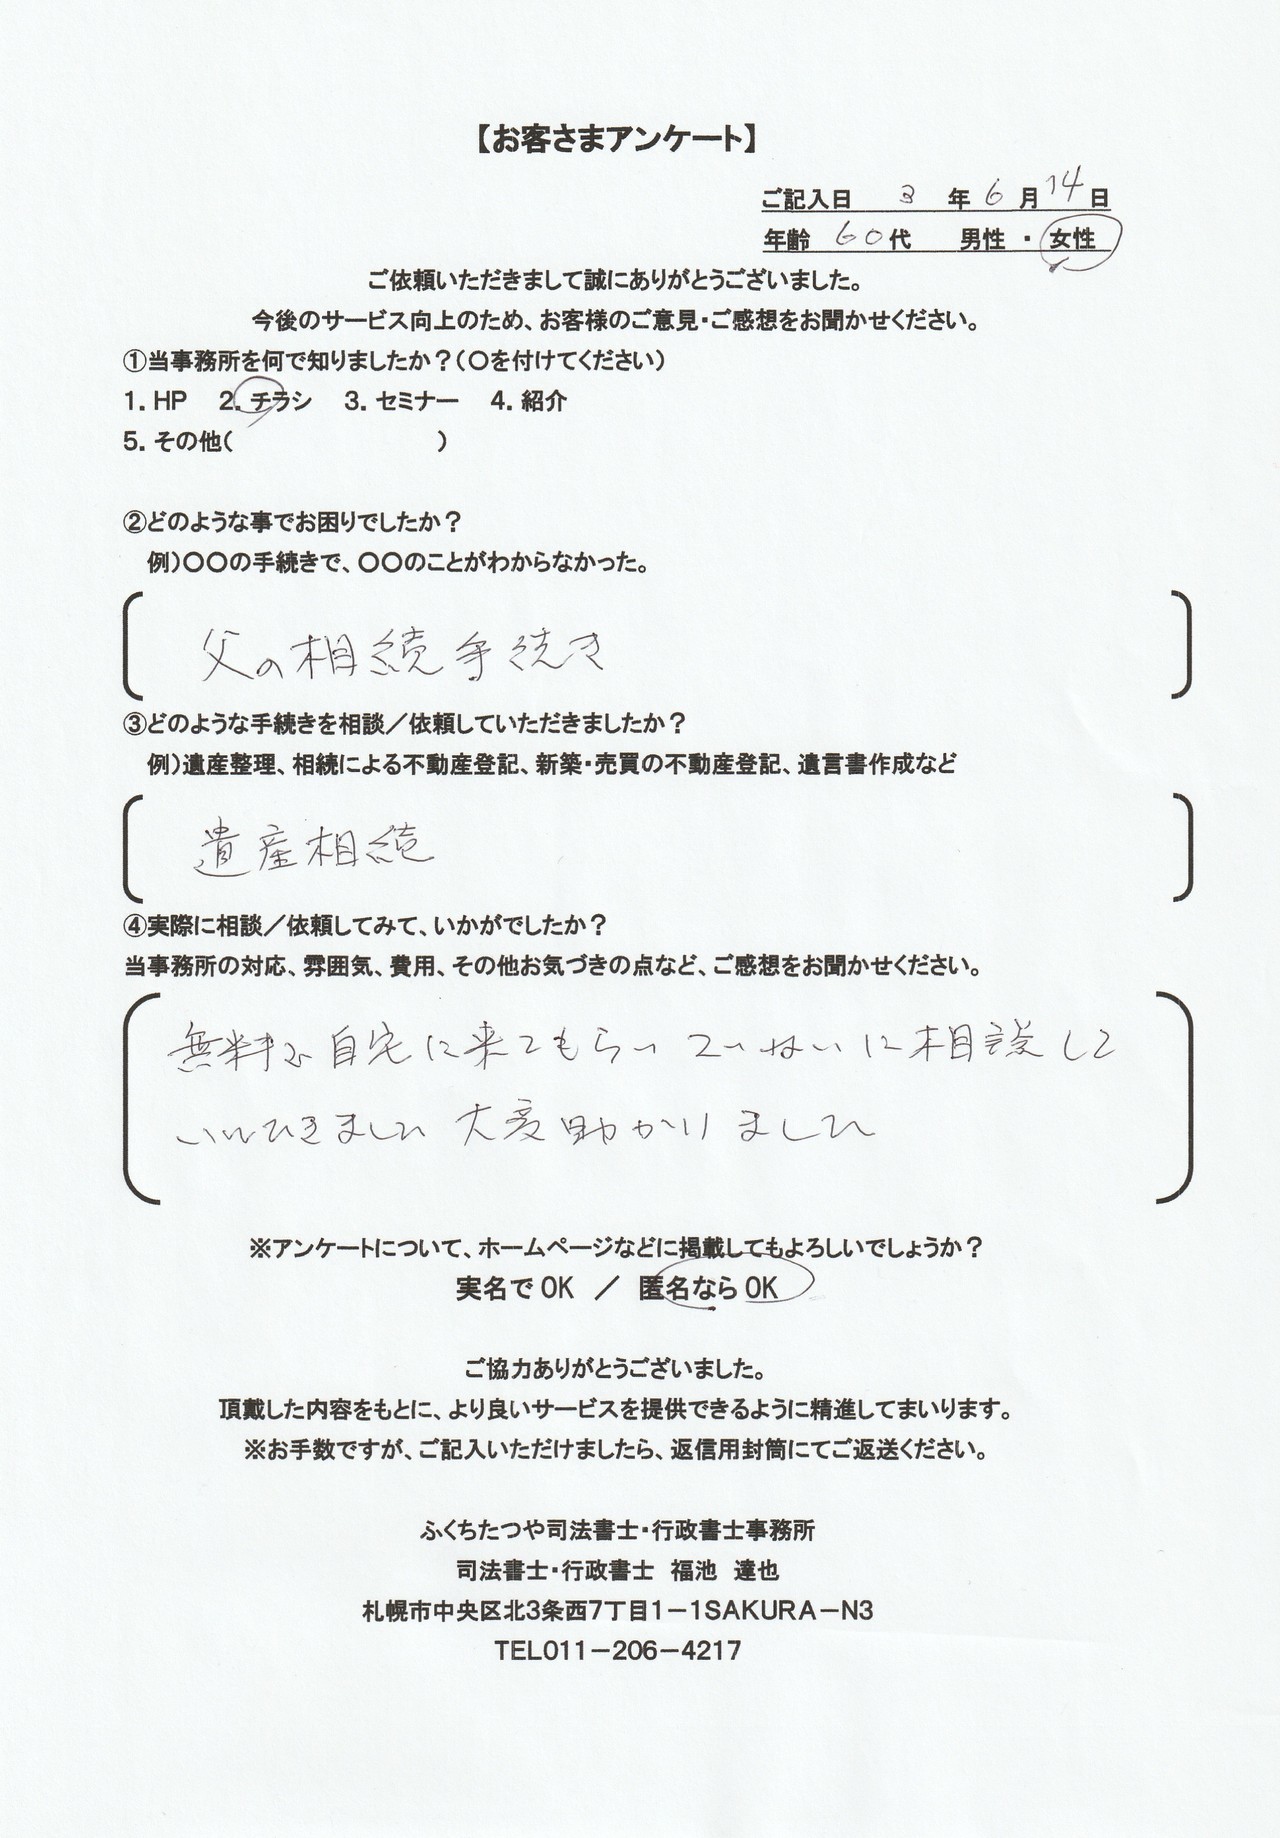 【お客さまアンケート】
ご記入日 3 年 6 月 14 日
年齢 60代 男性 ・ 女性
ご依頼いただきまして誠にありがとうございました。
今後のサービス向上のため、お客様のご意見・ご感想をお聞かせください。
①当事務所を何で知りましたか？（〇を付けてください）
1. HP 2. チラシ 3. セミナー 4. 紹介
5. その他（ ）
②どのような事でお困りでしたか？
例）〇〇の手続きで、〇〇のことがわからなかった。
父の相続手続き
③どのような手続きを相談／依頼していただきましたか？
例）遺産整理、相続による不動産登記、新築・売買の不動産登記、遺言書作成など
遺産相続
④実際に相談／依頼してみて、いかがでしたか？
当事務所の対応、雰囲気、費用、その他お気づきの点など、ご感想をお聞かせください。
無料で自宅に来てもらい ていねいに相談して
いただきました 大変助かりました
※アンケートについて、ホームページなどに掲載してもよろしいでしょうか？
実名でOK ／ 匿名ならOK
ご協力ありがとうございました。
頂戴した内容をもとに、より良いサービスを提供できるように精進してまいります。
※お手数ですが、ご記入いただけましたら、返信用封筒にてご返送ください。
ふくちたつや司法書士・行政書士事務所
司法書士・行政書士 福池 達也
札幌市中央区北3条西7丁目1－1SAKURA－N3
TEL011－206－4217